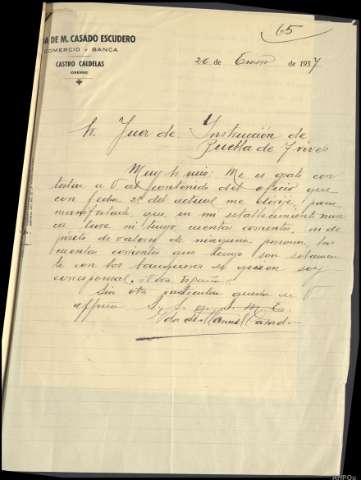 65
DA DE M. CASADO ESCUDERO
COMERCIO Y BANCA
CASTRO CALDELAS
(ORENSE)
26 de Enero de 1937
Sr. Juez de Instrucción de
Puebla de Trives
Muy Sr. mio: Me es grato con
testar a V. al contenido del oficio que
con fecha 2 del actual me dirije, para
manifestarle, que en mi establecimiento nun
ca tuve ni tengo cuentas corrientes, ni de
pósito de valores de ninguna persona, las
cuentas corrientes que tengo son solamen
te con los banqueros de quienes soy
corresponsal.
Sin otro particular queda de
V. affma
Vda de Manuel Casado